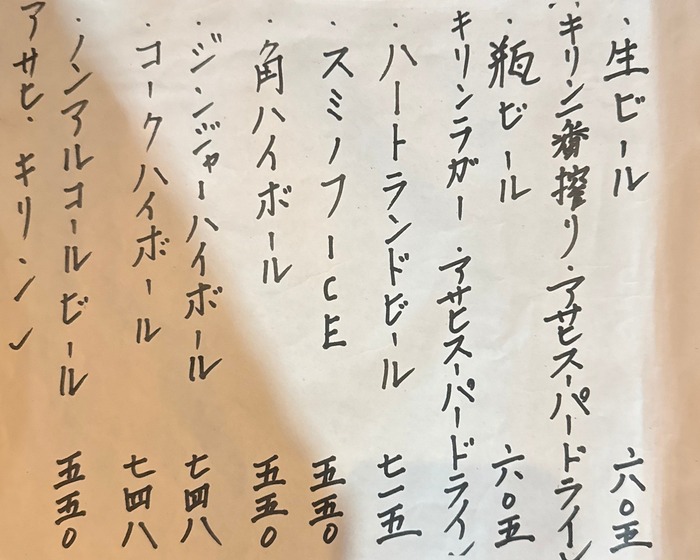 ・生ビール 六〇五
キリン一番搾り・アサヒスーパードライ
・瓶ビール 六〇五
キリンラガー・アサヒスーパードライ
・ハートランドビール 七一五
・スミノフーCE 五五〇
・角ハイボール 五五〇
・ジンジャーハイボール 七四八
・コークハイボール 七四八
・ノンアルコールビール 五五〇
アサヒ・キリン